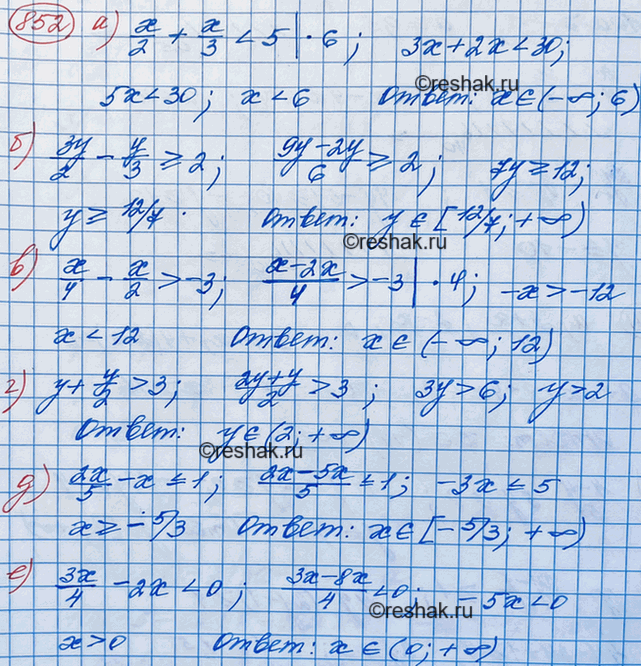 852 а) x/2 + x/3 < 5 | · 6 ; 3x + 2x < 30;
©reshak.ru
5x < 30 ; x < 6 Ответ: x ∈ (-∞; 6)
б) 3y/2 - y/3 ≥ 2 ; (9y - 2y)/6 ≥ 2 ; 7y ≥ 12;
y ≥ 12/7 . Ответ: y ∈ [12/7; +∞)
©reshak.ru
в) x/4 - x/2 > -3; (x - 2x)/4 > -3 | · 4 ; -x > -12
x < 12 Ответ: x ∈ (-∞; 12)
г) y + y/2 > 3; (2y + y)/2 > 3 ; 3y > 6; y > 2
Ответ: y ∈ (2; +∞)
©reshak.ru
д) 2x/5 - x ≤ 1; (2x - 5x)/5 ≤ 1; -3x ≤ 5
x ≥ -5/3 Ответ: x ∈ [-5/3; +∞)
е) 3x/4 - 2x < 0 ; (3x - 8x)/4 < 0; -5x < 0
©reshak.ru
x > 0 Ответ: x ∈ (0; +∞)